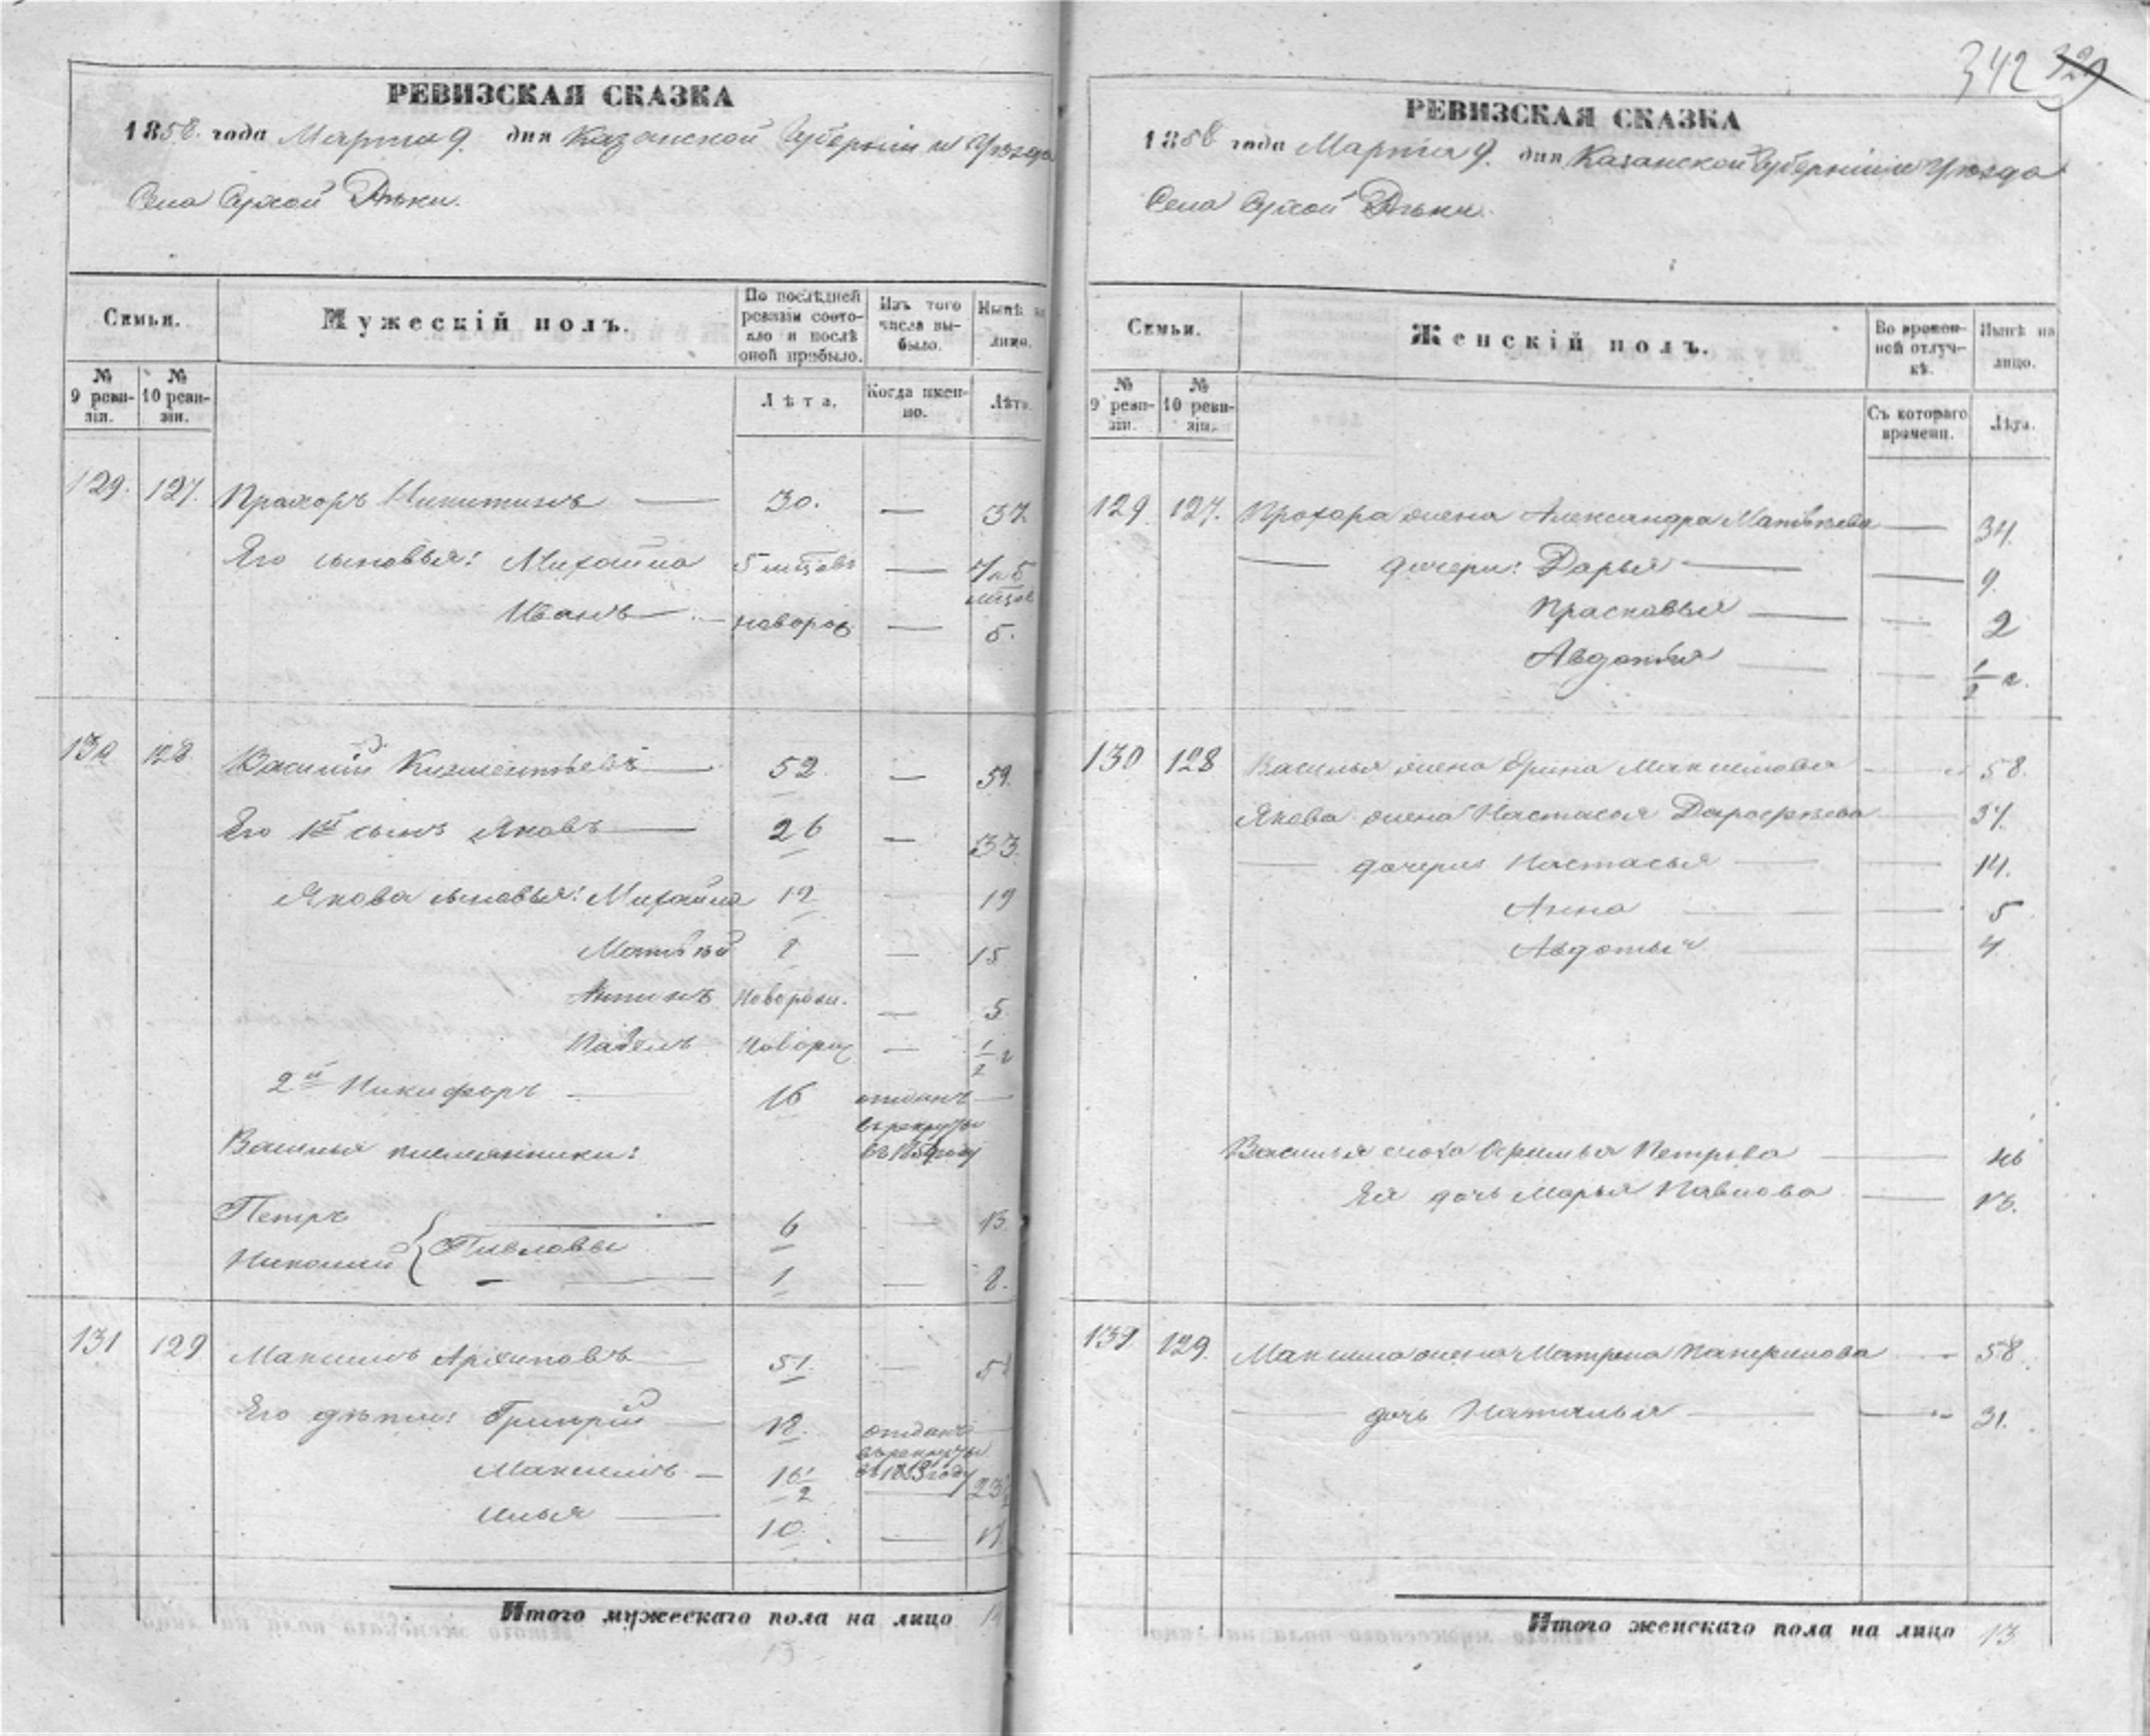 342 329
РЕВИЗСКАЯ СКАЗКА
1858. года Марта 9. дня Казанской Губерніи и Уѣзда
Села Сухой Рѣки.
Семьи.
Мужескій полъ.
По послѣдней ревизіи состояло и послѣ оной прибыло.
Изъ того числа выбыло.
Нынѣ на лицо.
№ 9 ревизіи.
№ 10 ревизіи.
Лѣта.
Когда именно.
Лѣта.
129. 127. Прохоръ Никитинъ — 30. — 37
Его сыновья: Михайла 5 мцовъ — 7 л 5 мцов
Иванъ — новорож — 5.
130 128 Василий Климентьевъ — 52. — 59.
Его 1й сынъ Яковъ — 26 — 33.
Якова сыновья: Михайла 12 — 19
Матвѣй 8 — 15
Антипъ Новорожн. — 5.
Павелъ Новорож — 1/2 г
2й Никифоръ — 16 отданъ —
въ рекруты
въ 1854 году
Василья племянники:
Петръ — 6 — 13.
Николай } Павловы — 1 — 8.
131 129 Максимъ Архиповъ — 51. — 58
Его дѣти: Григорій — 18. отданъ —
въ рекруты
въ 1853 году
Максимъ — 16 1/2 23 1/2
Илья — 10. — 17
Итого мужескаго пола на лицо 14
13
РЕВИЗСКАЯ СКАЗКА
1858 года Марта 9. дня Казанской Губерніи и Уѣзда
Села Сухой Рѣки.
Семьи.
Женскій полъ.
Во временной отлучкѣ.
Нынѣ на лицо.
№ 9 ревизіи.
№ 10 ревизіи.
Съ котораго времени.
Лѣта.
129 127. Прохора жена Александра Матвѣева — 34.
— дочери: Дарья — — 9.
Прасковья — — 2
Авдотья — — 1/2 г.
130 128 Василья жена Орина Максимова — 58.
Якова жена Настасья Дорофѣева — 37.
— дочери Настасья — — 14.
Анна — — 5
Авдотья — — 4
Василья сноха Офимья Петрова — 46
Ея дочь Марья Павлова — 18.
139 129. Максима жена Матрена Панфилова — 58.
— дочь Наталья — — 31.
Итого женскаго пола на лицо 13.